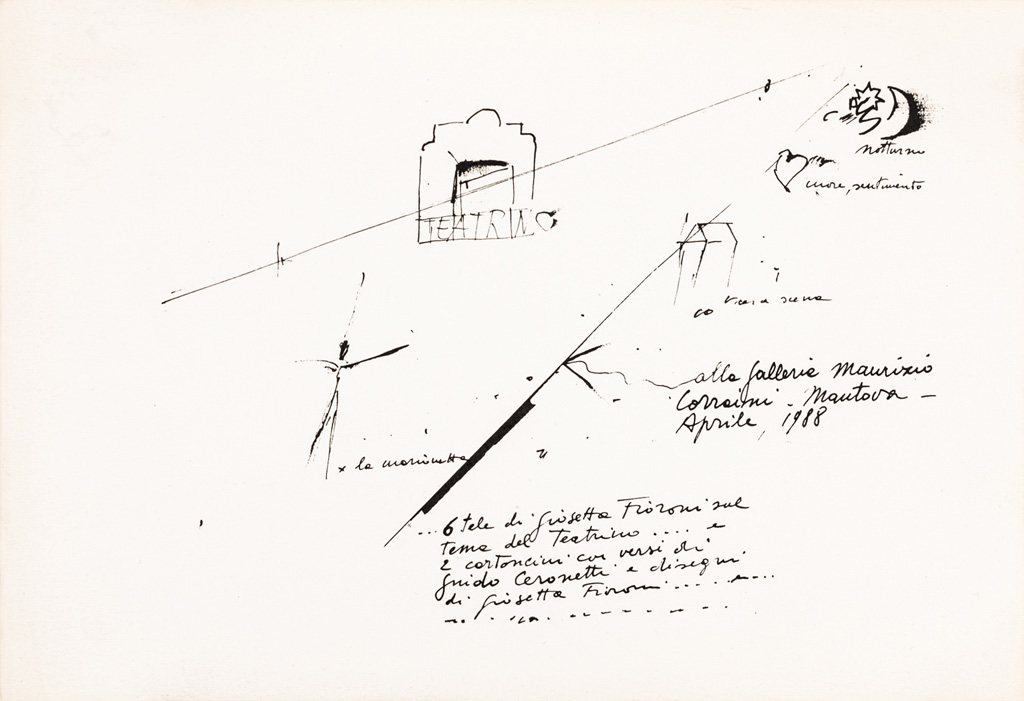 notturno
cuore, sentimento
TEATRINO
casa scena
alla Galleria Maurizio
Corraini - Mantova -
Aprile, 1988
x la marionetta
... 6 tele di Giosetta Fioroni sul
tema del Teatrino .... e
2 cartoncini con versi di
Guido Ceronetti e disegni
di Giosetta Fioroni ..... e...